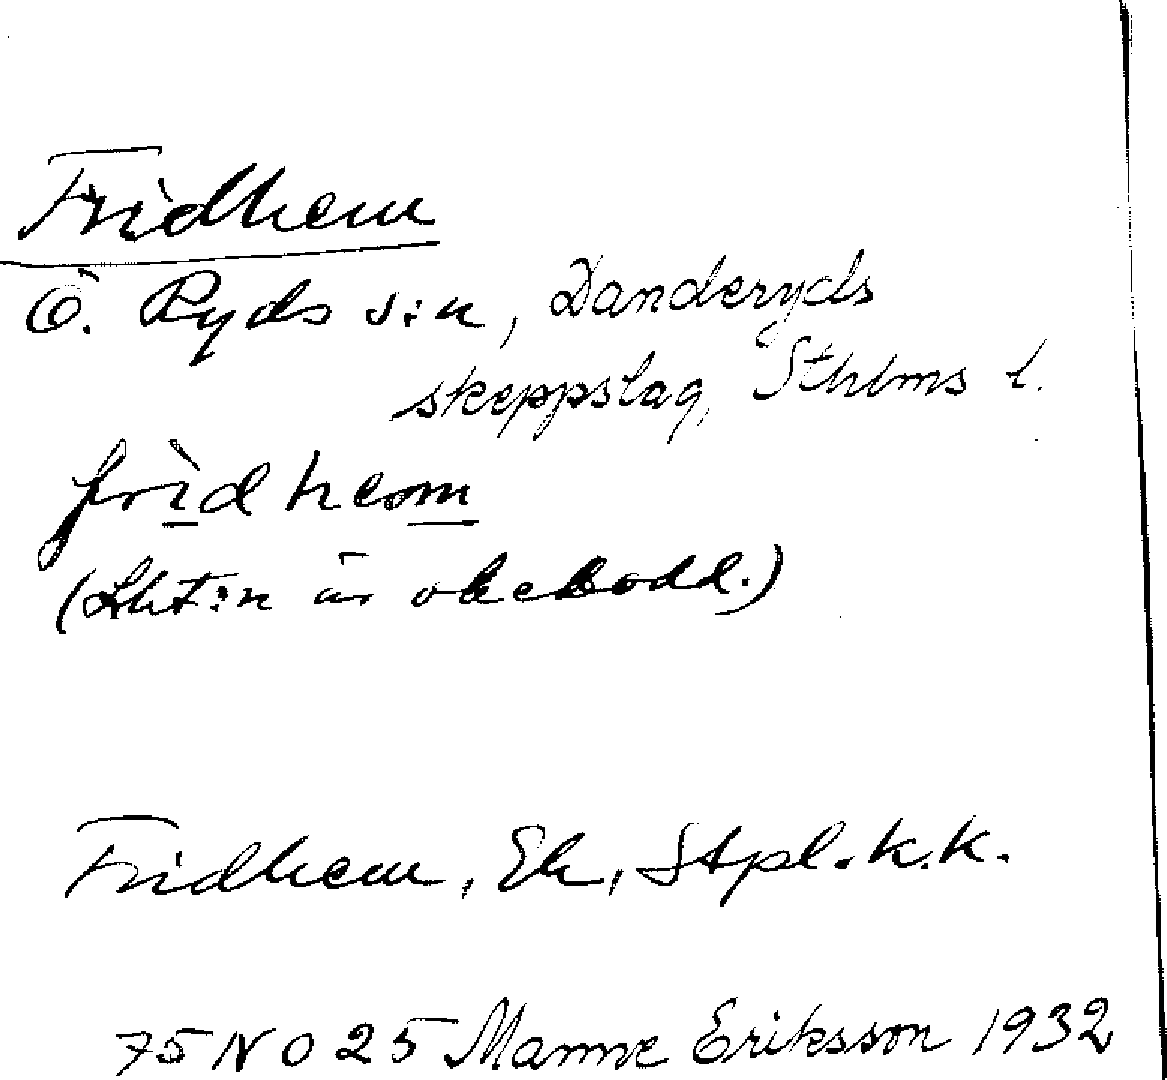 Fridhem
Ö. Ryds s:n, Danderyds
skeppslag, Sthlms l.
frìdhem
(Lht:n är obebodd.)
Fridhem, Ek, Stpl.k.k.
75 NO 25 Manne Eriksson 1932